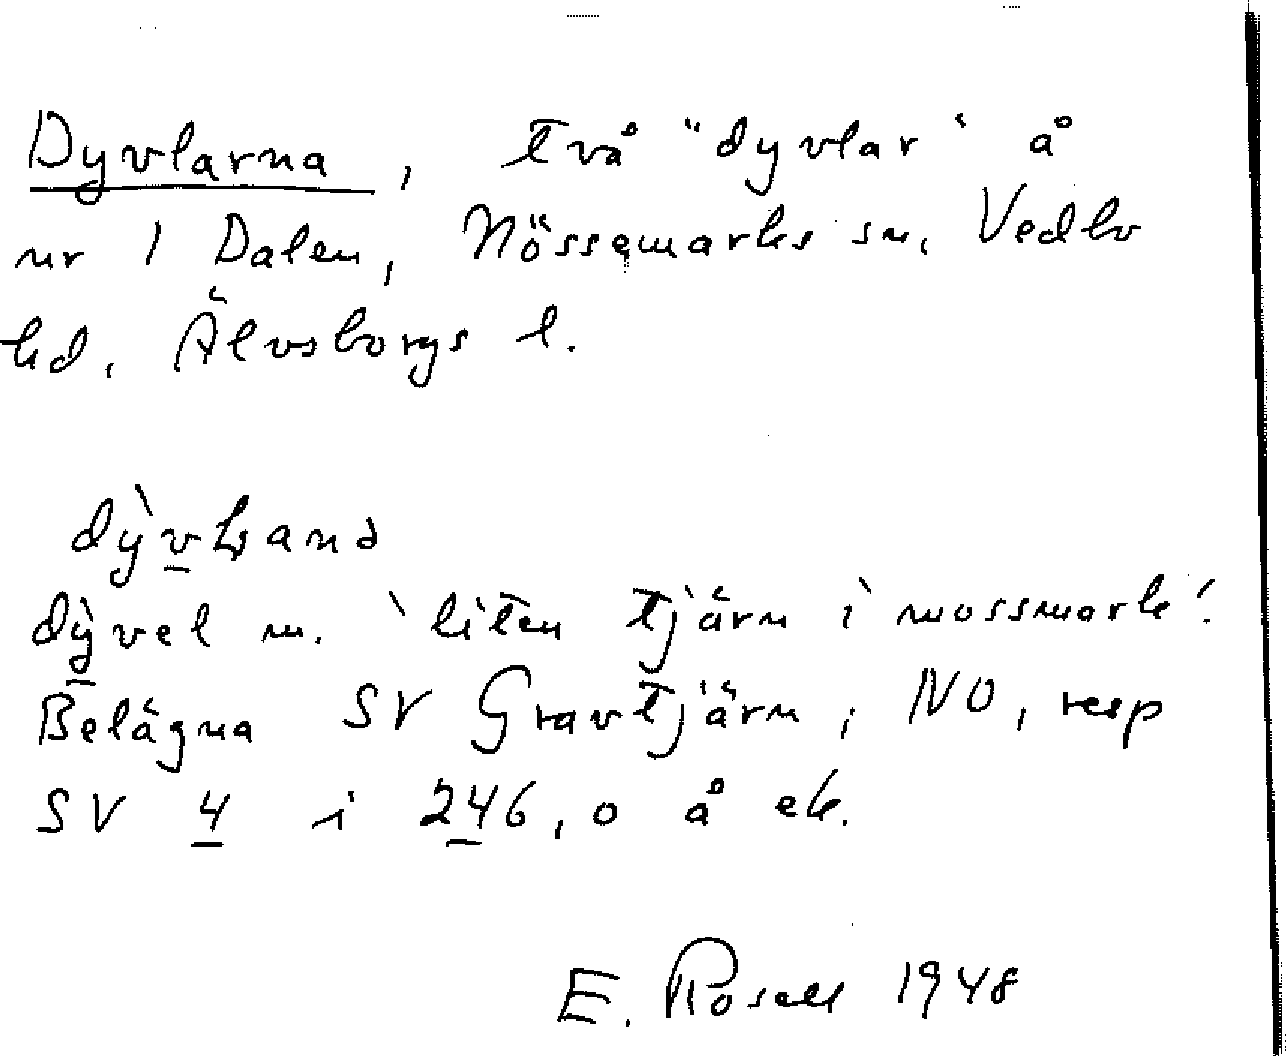 Dyvlarna, två "dyvlar" å
nr 1 Dalen, Nössemarks sn, Vedbo
hd, Älvsborgs l.
dỳvḷaṇa
dỳvel m. 'liten tjärn i mossmark'.
Belägna SV Gravtjärn, NO, resp
SV 4 i 246,0 å ek.
E. Rosell 1948